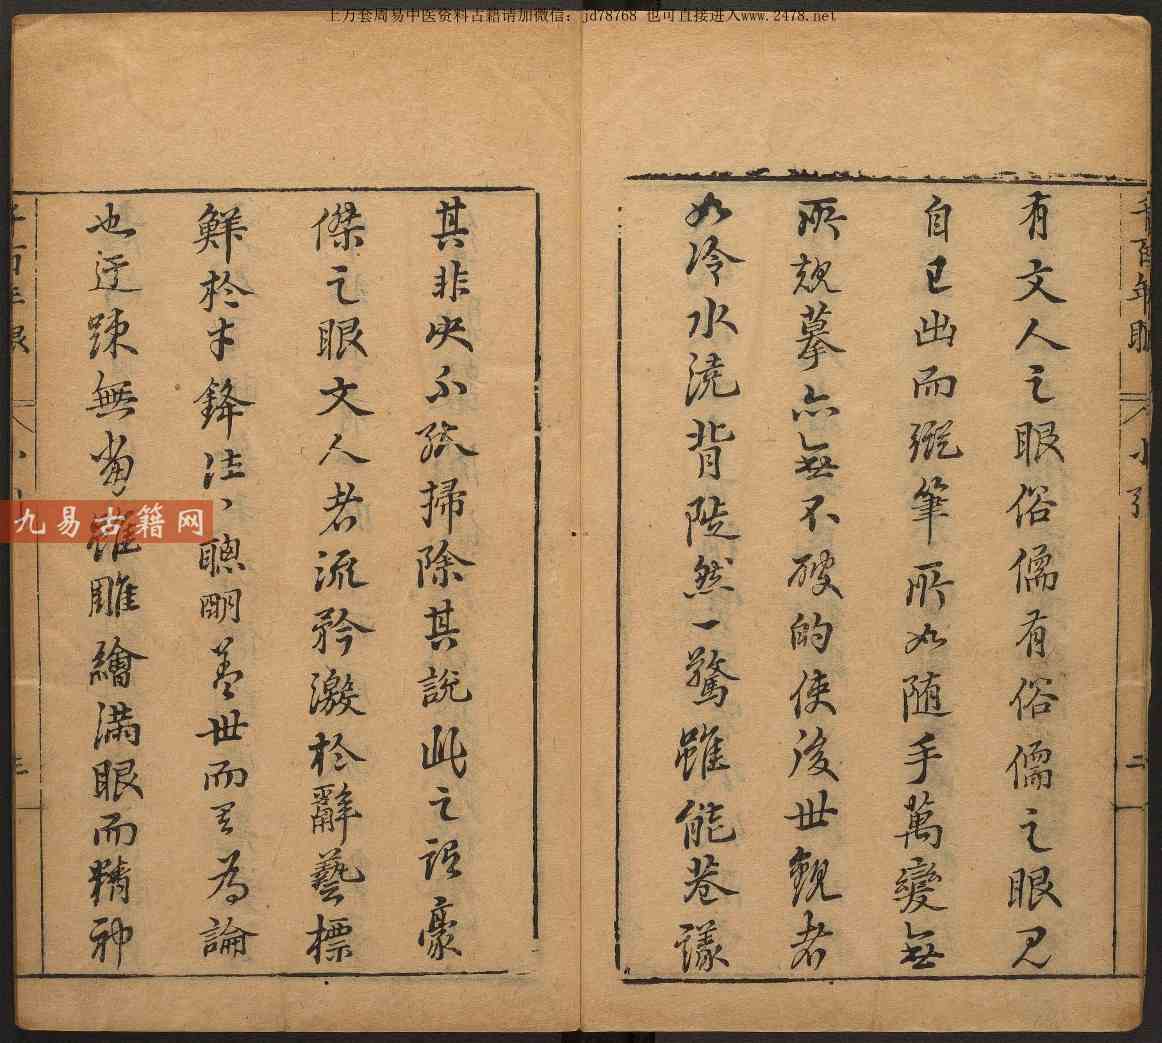 上万套周易中医资料古籍请加微信：jd78768 也可直接进入www.2478.net
千百年眼 小引 二
有文人之眼俗儒有俗儒之眼見
自已出而縱筆所如随手萬變無
所規摹亦無不破的使後世觀者
如冷水澆背陡然一驚雖能巷議
其非决不能掃除其說此之謂豪
傑之眼文人者流矜激於辭藝標
鮮於才鋒往丶聰明盖世而其為論
也迂踈無當雖雕繪滿眼而精神
千百年眼
九易古籍网